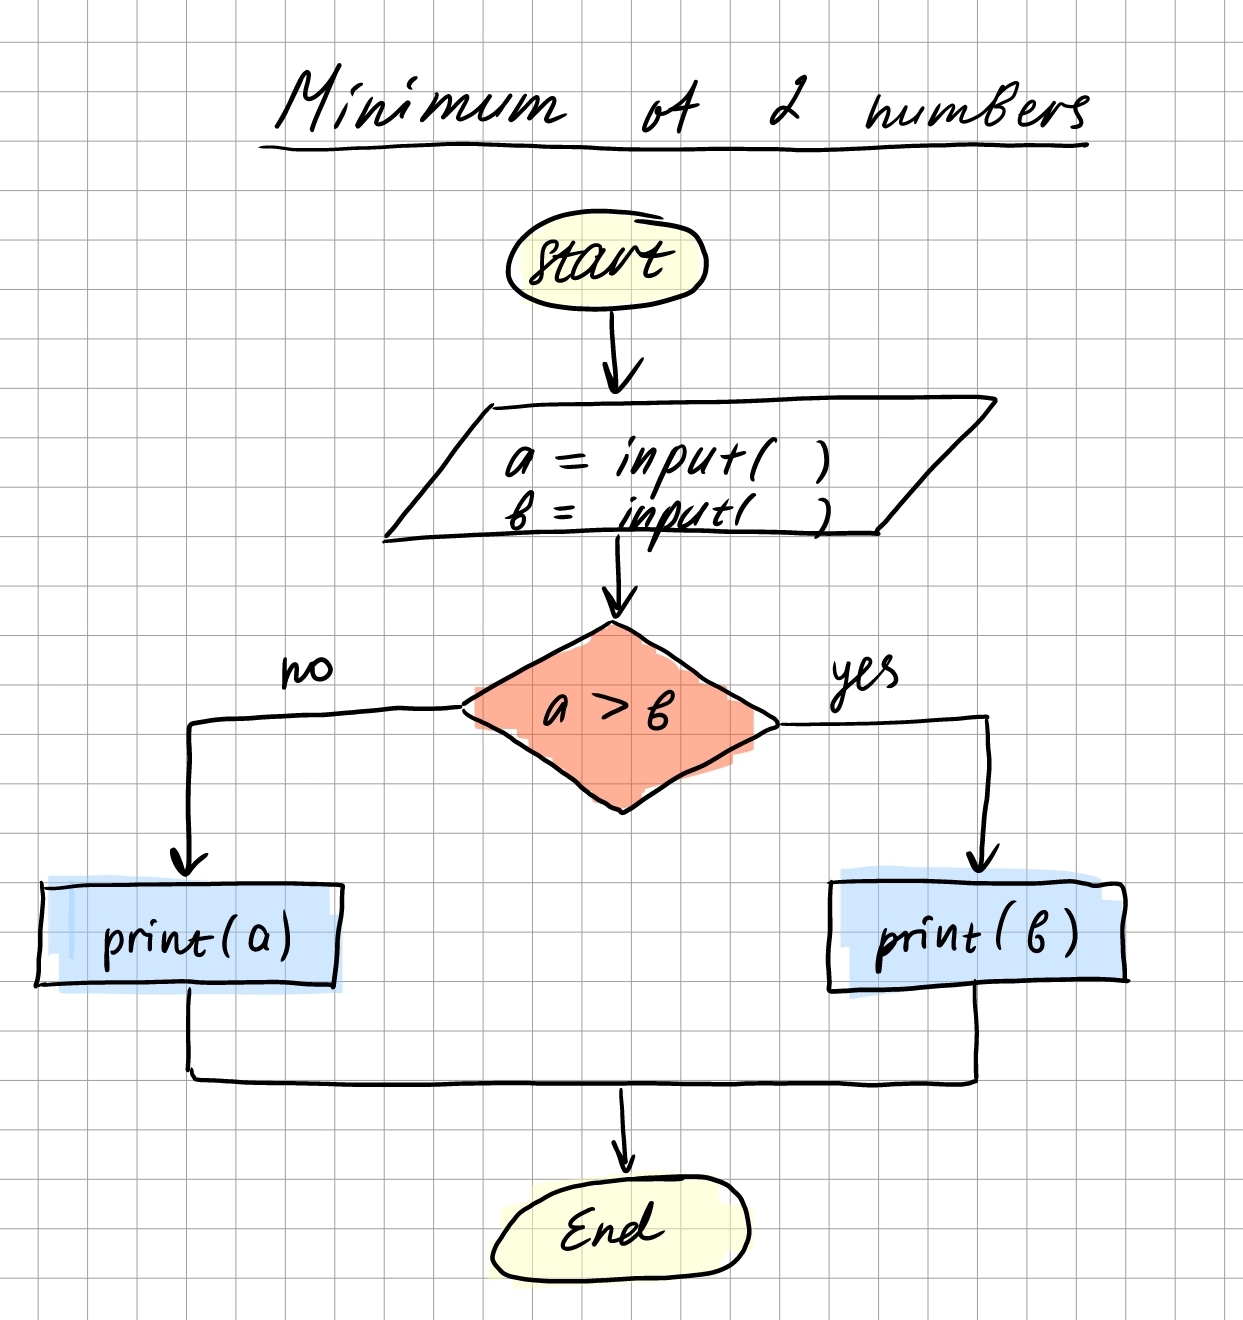 Minimum of 2 numbers
start
a = input( )
b = input( )
no
a > b
yes
print(a)
print(b)
End